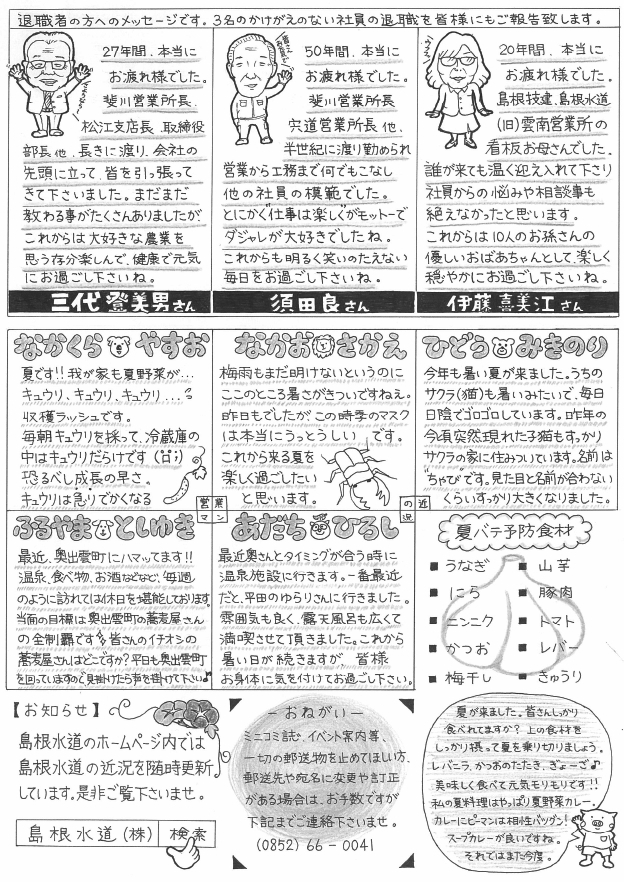 退職者の方へのメッセージです。3名のかけがえのない社員の退職を皆様にもご報告致します。
27年間、本当に
お疲れ様でした。
斐川営業所長、
松江支店長、取締役
部長他、長きに渡り、会社の
先頭に立って、皆を引っ張って
きて下さいました。まだまだ
教わる事がたくさんありましたが
これからは大好きな農業を
思う存分楽しんで、健康で元気
にお過ごし下さいね。
三代 登美男さん
50年間、本当に
お疲れ様でした。
斐川営業所長、
宍道営業所長 他、
半世紀に渡り勤められ
営業から工務まで何でもこなし
他の社員の模範でした。
とにかく"仕事は楽しく"がモットーで
ダジャレが大好きでしたね。
これからも明るく笑いのたえない
毎日をお過ごし下さいね。
須田 良さん
20年間、本当に
お疲れ様でした。
島根技建、島根水道
(旧)雲南営業所の
看板お母さんでした。
誰が来ても温く迎え入れて下り
社員からの悩みや相談事も
絶えなかったと思います。
これからは10人のお孫さんの
優しいおばあちゃんとして、楽しく
穏やかにお過ごし下さいね。
伊藤 喜美江さん
なかくら やすお
夏です!!我が家も夏野菜が…
キュウリ、キュウリ、キュウリ…
収穫ラッシュです。
毎朝キュウリを採って、冷蔵庫の
中はキュウリだらけです
恐るべし成長の早さ。
キュウリは急にでかくなる
なかお さかえ
梅雨もまだ明けないというのに
ここのところ暑さがきついですねぇ。
昨日もでしたが、この時季のマスク
は本当にうっとうしい です。
これから来る夏を
楽しく過ごしたい
と思います。
ひどう みきのり
今年も暑い夏が来ました。うちの
サクラ(猫)も暑いみたいで、毎日
日陰でゴロゴロしています。昨年の
今頃突然現れた子猫もすっかり
サクラの家に住みついています。名前は
"ちゃび"です。見た目と名前が合わない
くらいすっかり大きくなりました。
営業
マン
の近
況
ふるやま としゆき
最近、奥出雲町にハマッてます!!
温泉、食べ物、お酒などなど、毎週
のように訪れては休日を堪能しております。
当面の目標は奥出雲町の蕎麦屋さん
の全制覇です。皆さんのイチオシの
蕎麦屋さんはどこですか?平日も奥出雲町
を回っていますので見掛けたら声を掛けて下さい♪
あだち ひろし
最近奥さんとタイミングが合う時に
温泉施設に行きます。一番最近
だと、平田のゆらりさんに行きました。
雰囲気も良く、露天風呂も広くて
満喫させて頂きました。これから
暑い日が続きますが、皆様
お身体に気を付けてお過ごし下さい。
夏バテ予防食材
■ うなぎ ■ 山芋
■ にら ■ 豚肉
■ ニンニク ■ トマト
■ かつお ■ レバー
■ 梅干し ■ きゅうり
【お知らせ】
島根水道のホームページ内では
島根水道の近況を随時更新
しています。是非ご覧下さいませ。
島根水道(株) 検索
― おねがい ―
ミニコミ誌や、イベント案内等、
一切の郵送物を止めてほしい方、
郵送先や宛名に変更や訂正
がある場合は、お手数ですが
下記までご連絡下さいませ。
(0852)66-0041
夏が来ました。皆さんしっかり
食べれてますか?上の食材を
しっかり摂って夏を乗り切りましょう。
レバニラ、かつおのたたき、ぎょーざ♪
美味しく食べて元気モリモリです!!
私の夏料理はやっぱり夏野菜カレー。
カレーにピーマンは相性バツグン!
スープカレーが良いですね。
それではまた今度。